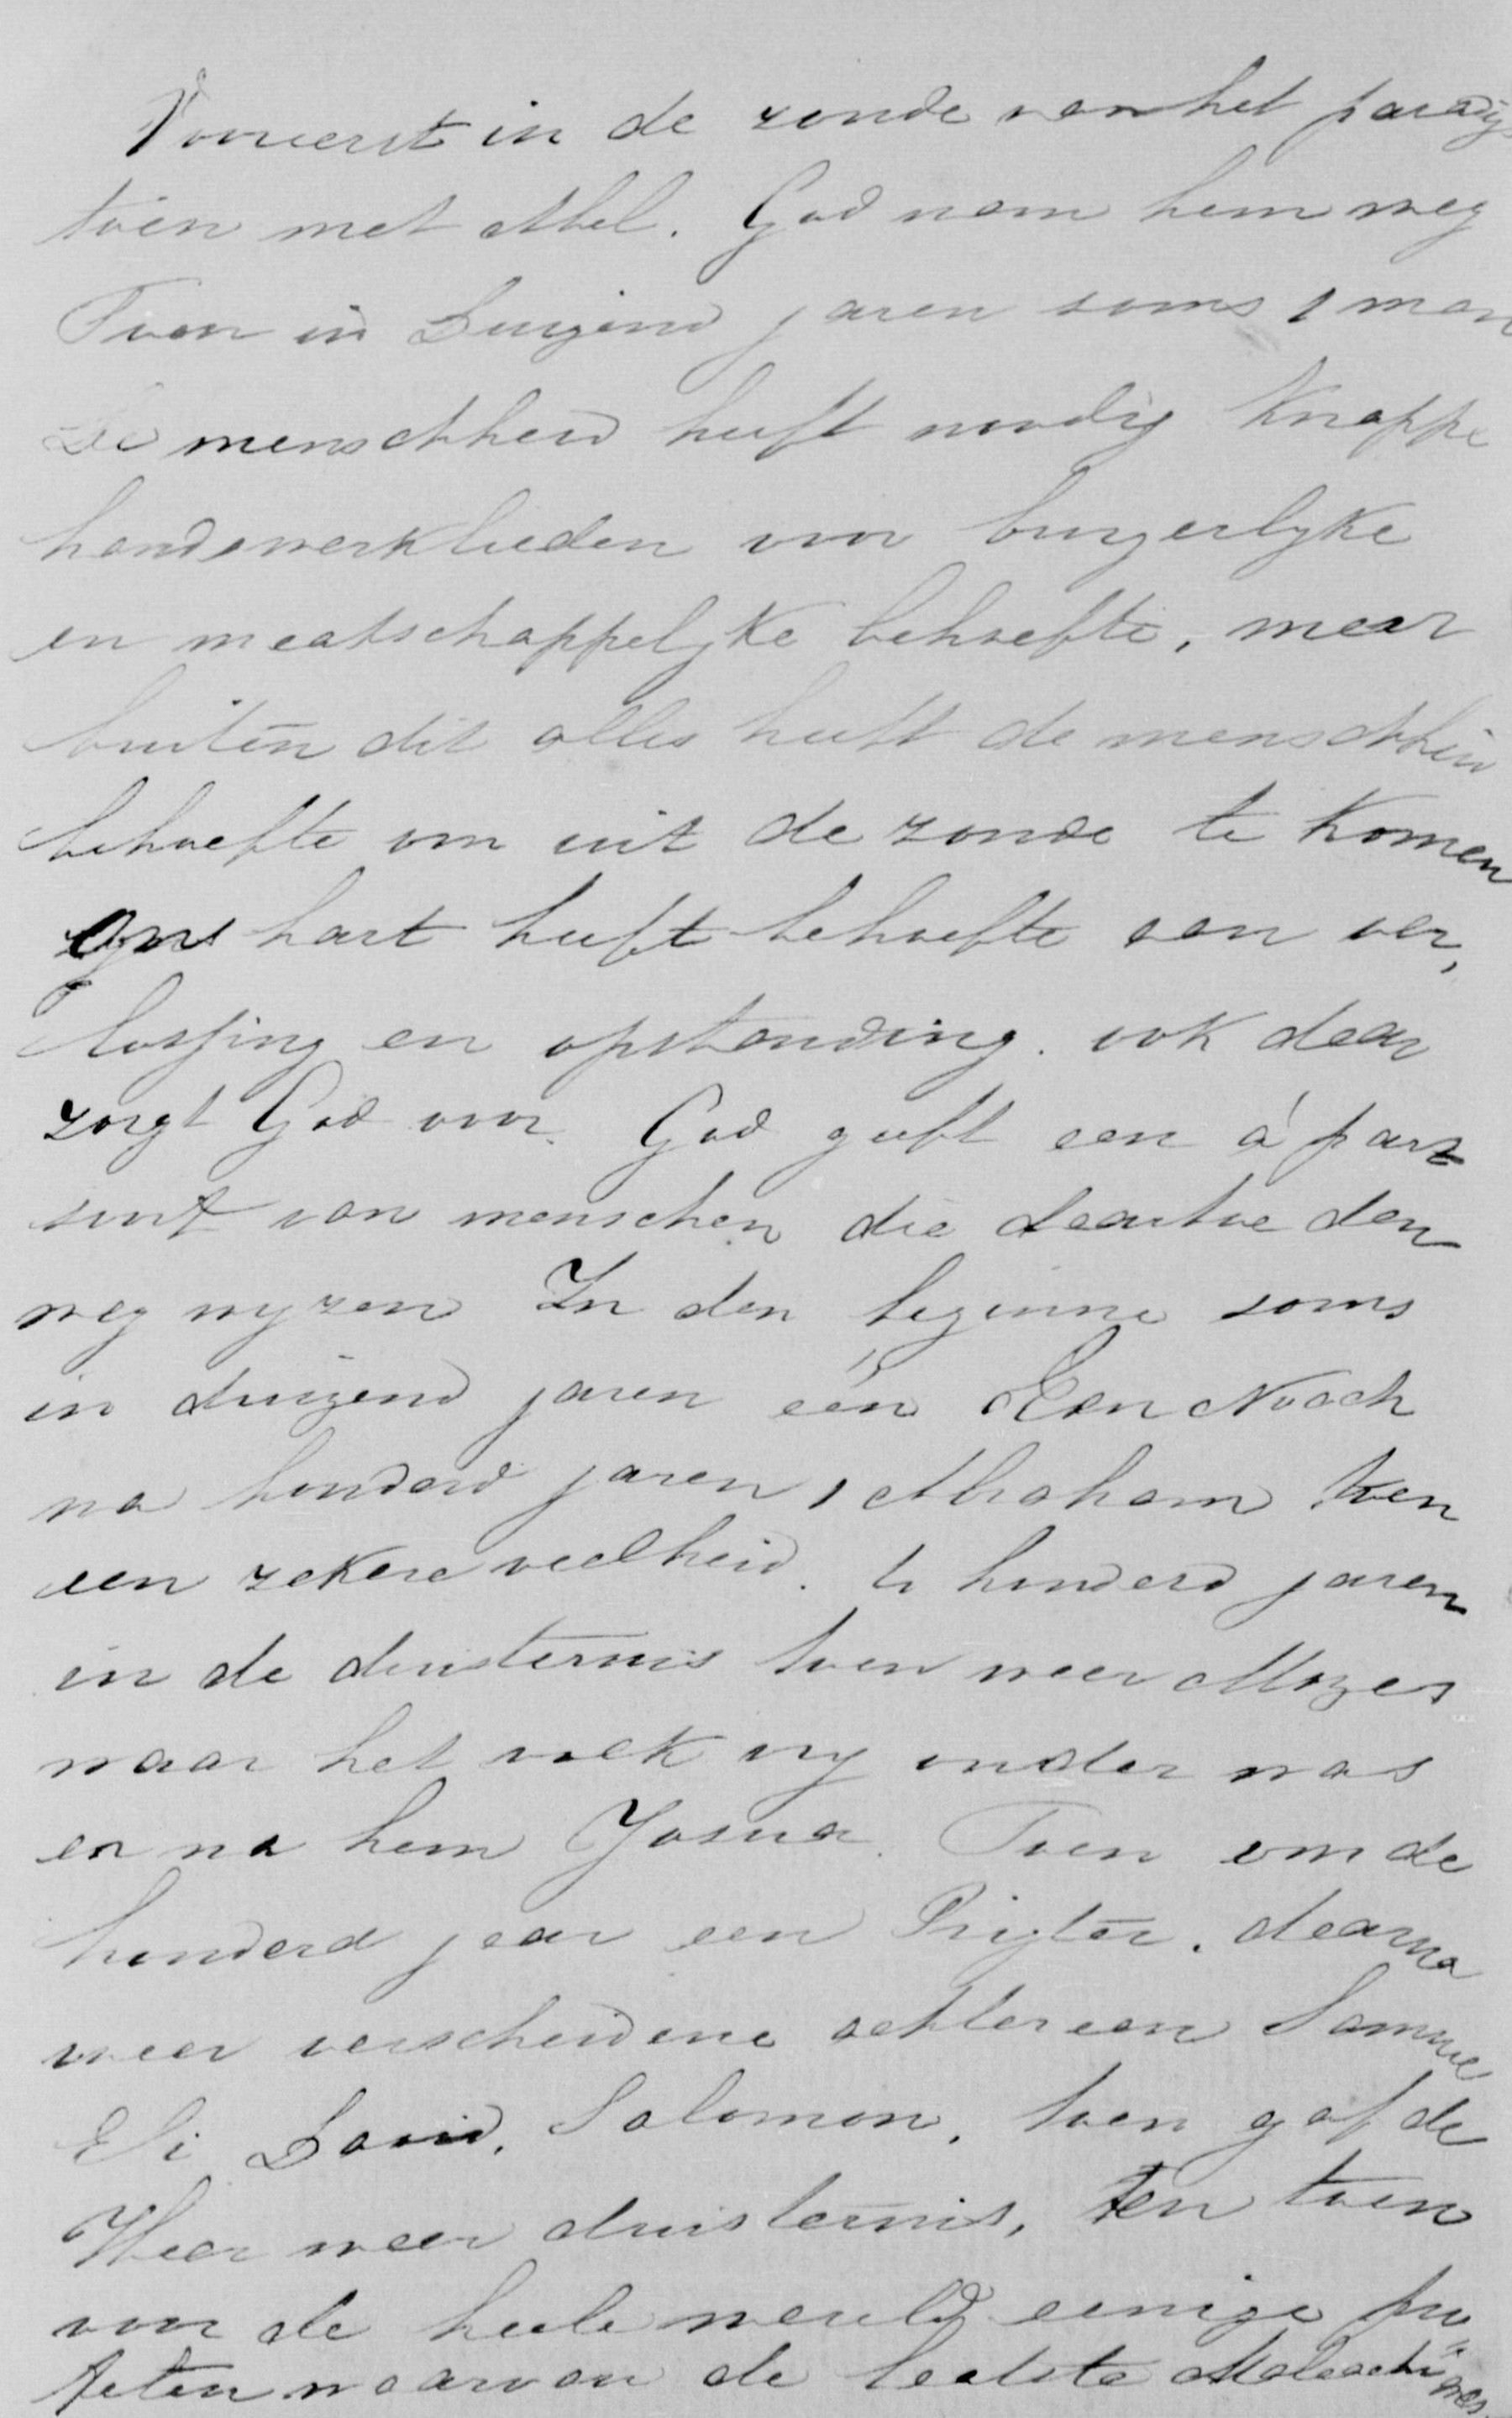 Vooreerst in de zonde van het paradijs
toen met Abel. God nam hem weg
Toen in Duizend jaren soms 1 man
De menschheid heeft noodig Knappe
handswerklieden voor burgerlyke
en maatschappelyke behoefte, maar
buiten dit alles heeft de menschheid
behoefte om uit de zonde te Komen
ons hart heeft behoefte aan ver,
lossing en opstanding. ook daar
zorgt God voor. God geeft een á part
soort van menschen die daartoe den
weg wyzen In den beginne soms
in duizend jaren één Een Noach
na honderd jaren, Abraham toen
een zekere veelheid. 4 honderd jaren
in de duisternis toen weer Mozes
waar het volk vry onder was
en na hem Josua. Toen om de
honderd jaar een Rigter. daarna
weer verscheidene achtereen Samuel
Eli David, Salomon, toen gaf de
Heer weer duisternis, En toen
voor de heele wereld eenige pro"
feten waarvan de laatste Maleachi was.